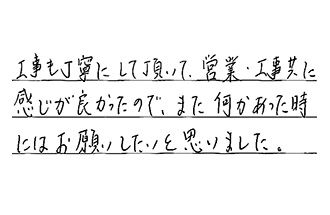 工事も丁寧にして頂いて、営業・工事共に
感じが良かったので、また何かあった時
にはお願いしたいと思いました。